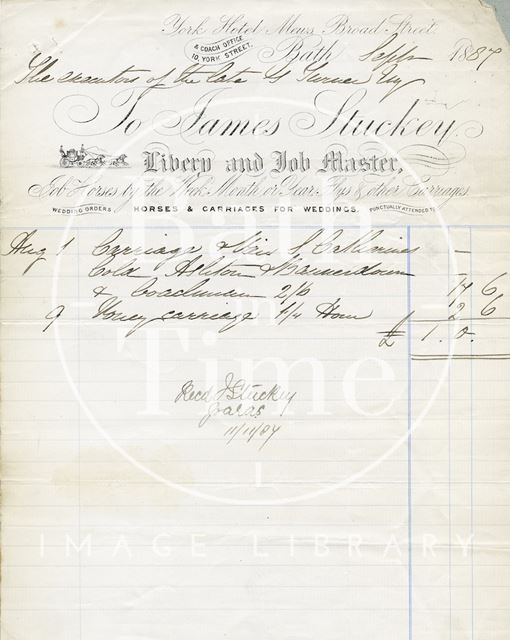 York Hotel Mews, Broad Street.
& COACH OFFICE
10, YORK STREET.
Bath Sept 1887
The executors of the late Turner Esq
To James Stuckey,
Livery and Job Master,
Job Horses by the Week, Month or Year. Flys & other Carriages.
WEDDING ORDERS HORSES & CARRIAGES FOR WEDDINGS. PUNCTUALLY ATTENDED TO
Aug 1 Carriage & Pair
Cold Ashton &
& Coachman 2/6 6
9 carriage 2 6
£ 1. 0.
Recd J Stuckey
11/11/87
Bath in Time
IMAGE LIBRARY